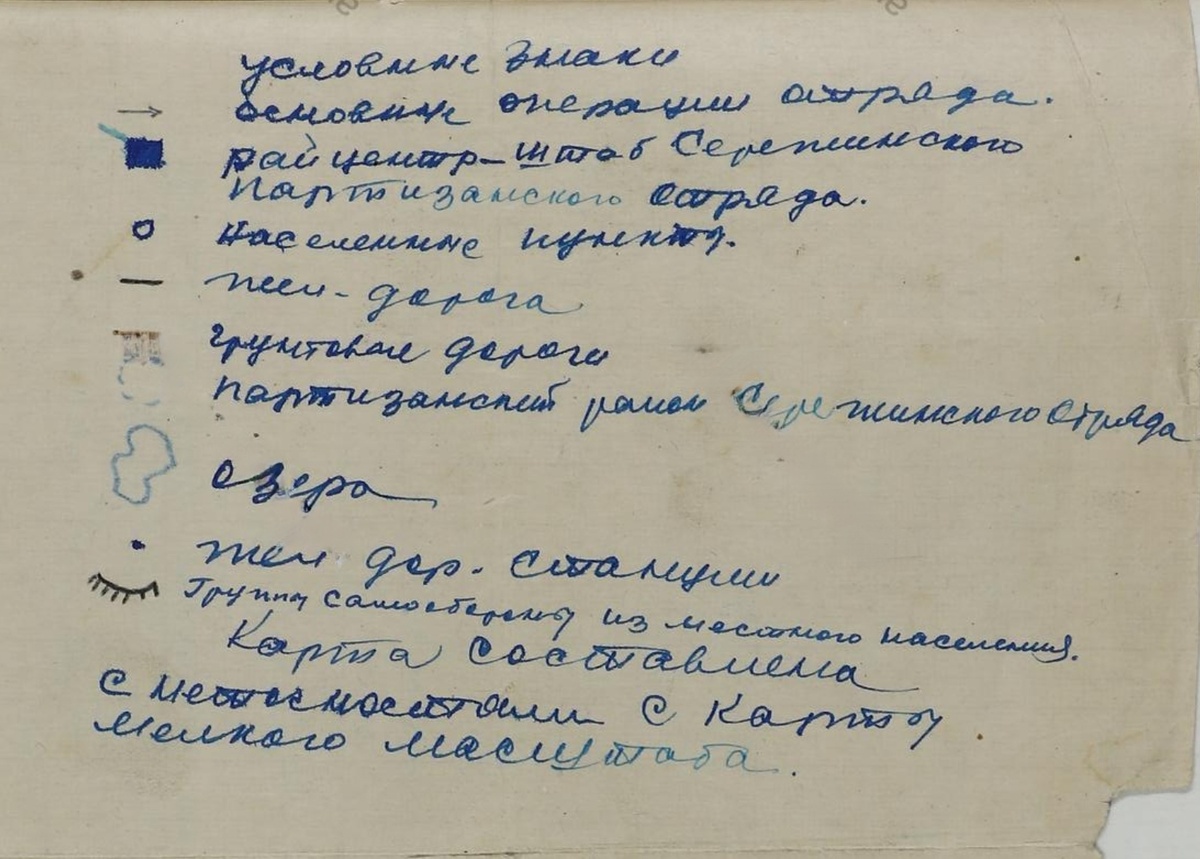 условные знаки
основные операции отряда.
райцентр-штаб Сережинского
партизанского отряда.
населенные пункты.
жел-дорога
грунтовые дороги
партизанский район Сережинского отряда
озера
жел дор. станции
Группы самообороны из местного населения.
Карта составлена
с неточностями с карты
мелкого масштаба.